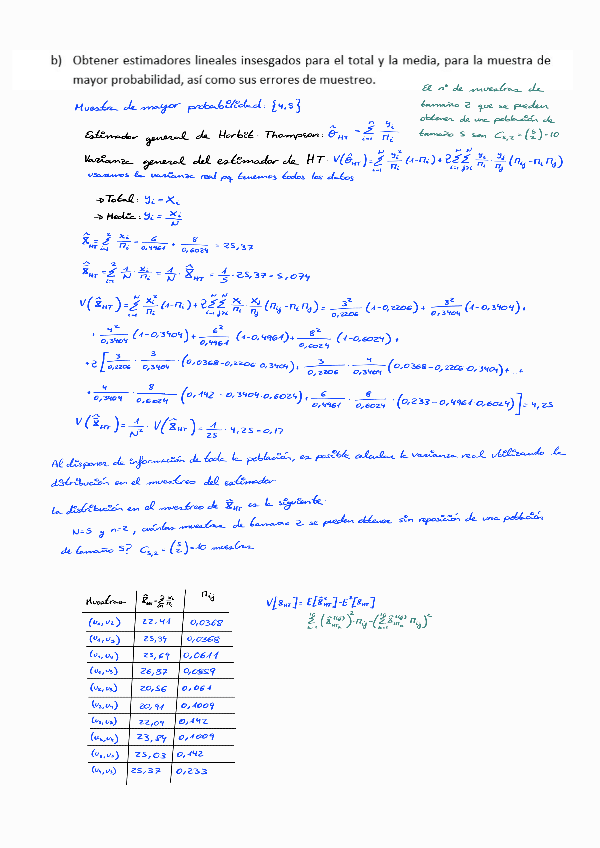 b) Obtener estimadores lineales insesgados para el total y la media, para la muestra de
mayor probabilidad, así como sus errores de muestreo.
El nº de muestras de
tamaño 2 que se pueden
obtener de una población de
tamaño 5 son C5,2 = (5 2) = 10
Muestra de mayor probabilidad: {4,5}
Estimador general de Horbit-Thompson: θ̂HT = Σ yi/πi
Varianza general del estimador de HT: V(θ̂HT) = Σ yi²/πi (1-πi) + 2ΣΣ yi/πi · yj/πj (πij - πi πj)
usaremos la varianza real pq tenemos todos los datos
→ Total: yi = xi
→ Media: yi = xi/N
X̂HT = Σ xi/πi = 6/0,4961 + 8/0,6024 = 25,37
X̄̂HT = Σ 1/N · xi/πi = 1/N · X̂HT = 1/5 · 25,37 = 5,074
V(X̂HT) = Σ xi²/πi (1-πi) + 2ΣΣ xi/πi · xj/πj (πij - πi πj) = 3²/0,2206 (1-0,2206) + 3²/0,3404 (1-0,3404) +
+ 4²/0,3404 (1-0,3404) + 6²/0,4961 (1-0,4961) + 8²/0,6024 (1-0,6024) +
+ 2[3/0,2206 · 3/0,3404 · (0,0368-0,2206·0,3404) + 3/0,2206 · 4/0,3404 (0,0368-0,2206·0,3404) + ...
+ 4/0,3404 · 8/0,6024 (0,142 - 0,3404·0,6024) + 6/0,4961 · 8/0,6024 · (0,233-0,4961·0,6024)] = 4,25
V(X̄̂HT) = 1/N² · V(X̂HT) = 1/25 · 4,25 = 0,17
Al disponer de información de toda la población, es posible calcular la varianza real utilizando la
distribución en el muestreo del estimador.
La distribución en el muestreo de X̂HT es la siguiente:
N=5 y n=2, cuántas muestras de tamaño 2 se pueden obtener sin reposición de una población
de tamaño 5? C5,2 = (5 2) = 10 muestras
Muestras X̂HT = Σ xi/πi πij
(u1,u2) 22,41 0,0368
25,34 0,0368
25,69 0,0611
26,87 0,0859
20,56 0,061
20,91 0,1009
22,09 0,142
23,84 0,1009
25,03 0,142
25,37 0,233
V[X̂HT] = E[X̂²HT] - E²[X̂HT]